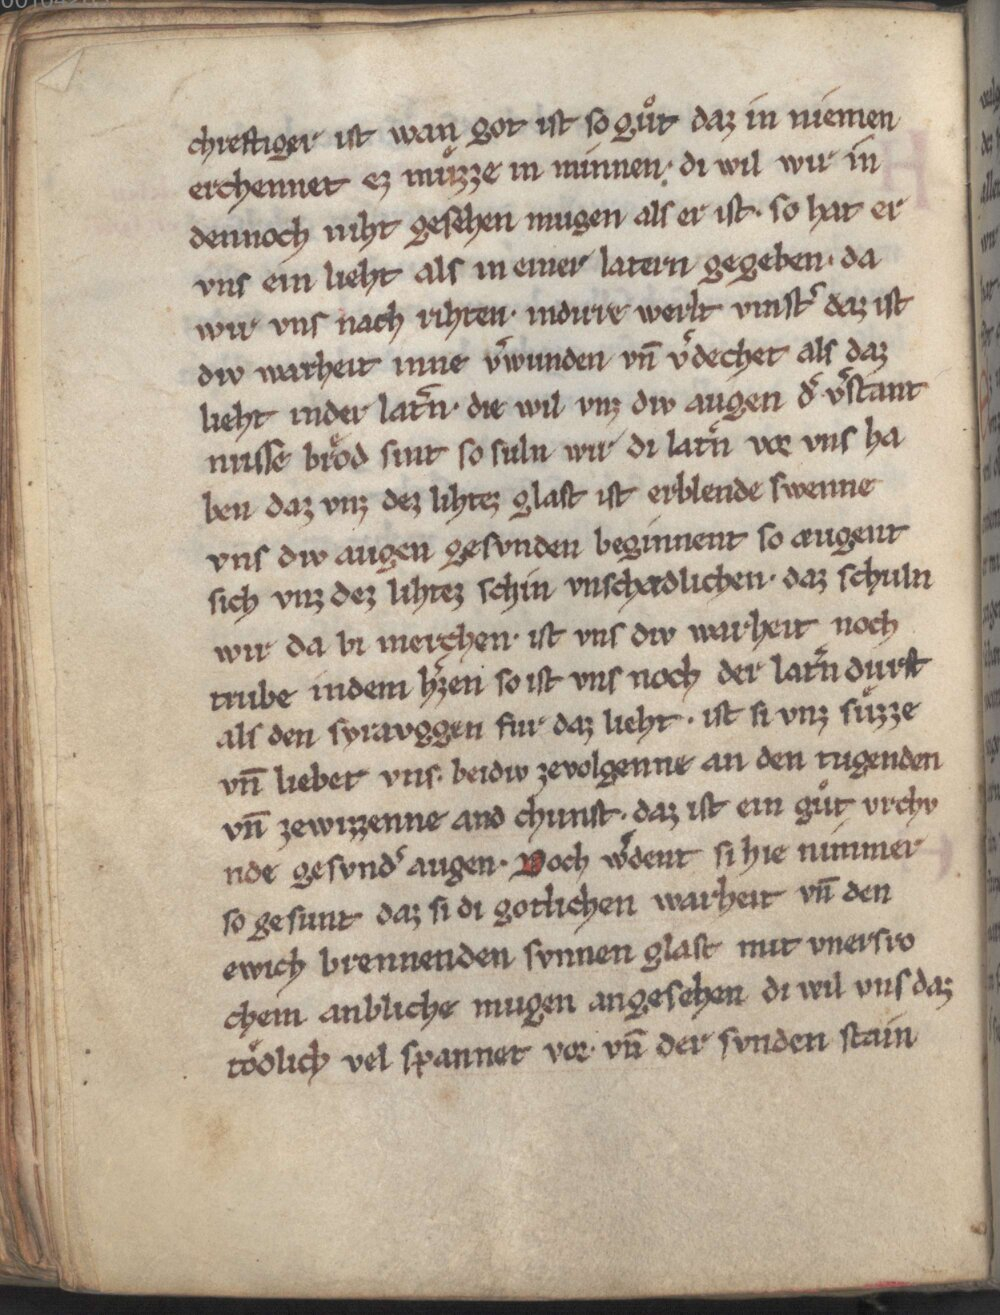 chreftiger ist wan got ist so guͦt daz in niemen
erchennet ez muͤzze in minnen· di wil wir in
dennoch niht gesehen mugen als er ist· so hat er
vns ein lieht als in einer latern gegeben· da
wir vns nach rihten· in dirre werlt vinstˢ daz ist
div warheit inne vˢwunden vn̄ vˢdechet als daz
lieht in der latˢn· die wil vnz div augen dˢ vˢstant
nusse broͤd sint so suln wir di latˢn vor vns ha
ben daz vnz dez lihtez glast iht erblende swenne
vns div augen gesvnden beginnent so æugent
sich vnz dez lihtez schin vnschedlichen· daz schuln
wir da bi merchen· ist vns div warheit noch
trube in dem hˢzen so ist vns noch der latˢn durft
als den syravggen fur daz lieht· ist si vnz suͤzze
vn̄ liebet vns· beidiv ze volgenne an den tugenden
vn̄ ze wizzenne and chunst· daz ist ein guͦt vrchv
nde gesvndˢ augen· Doch wˢdent si hie nimmer
so gesunt daz si di gotlichen warheit vn̄ den
ewich brennenden svnnen glast mit vnersro
chem anbliche mugen angesehen di wil vns daz
toͤdlich vel spannet vor· vn̄ der svnden stain